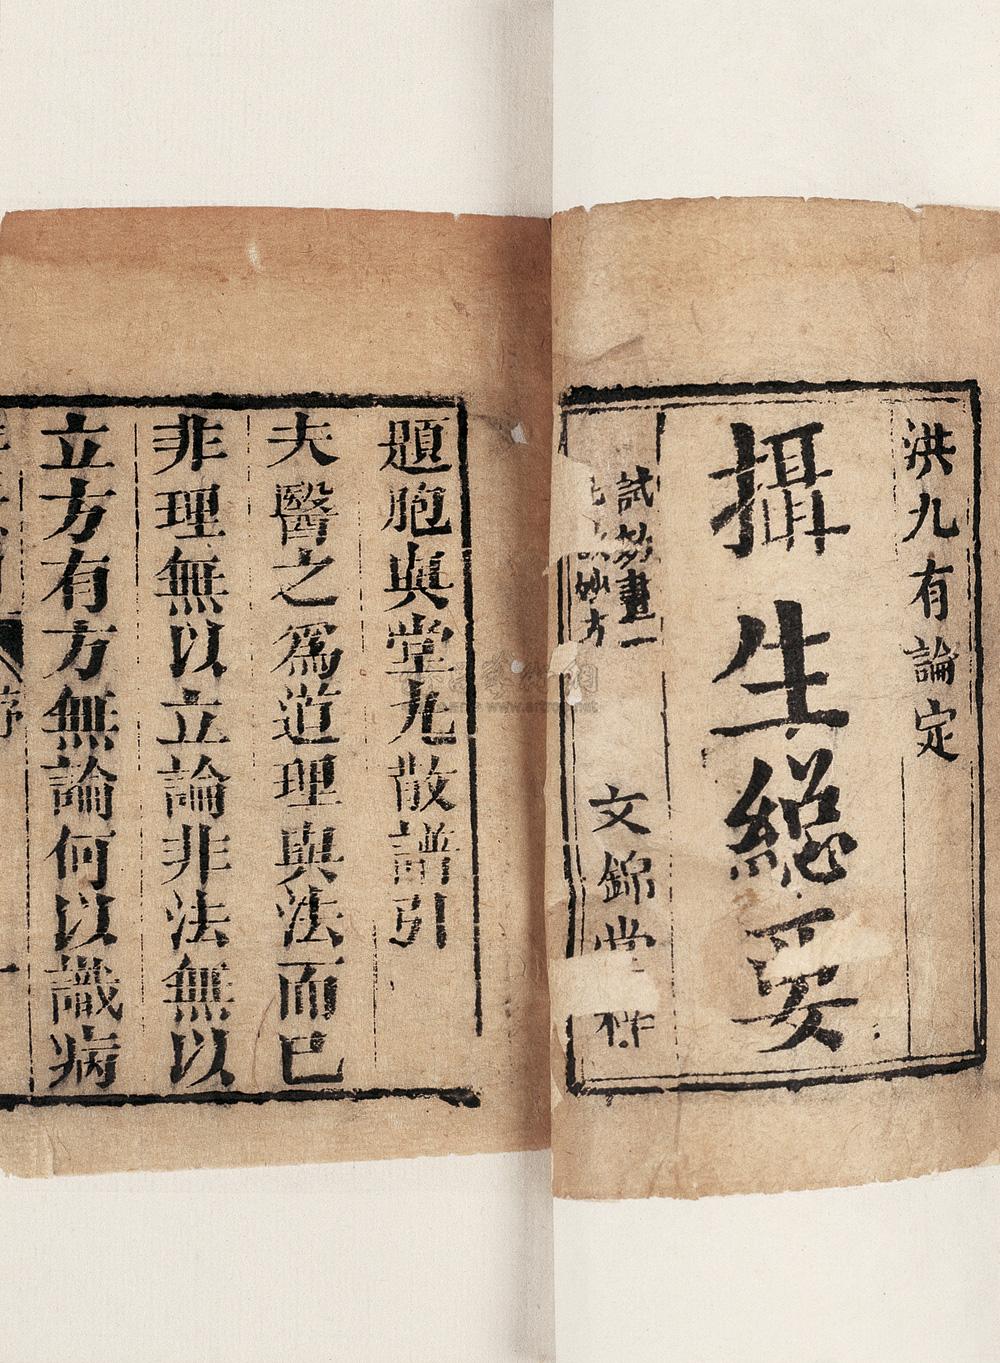 洪九有論定
攝生總要
試妙畫一
妙方
文錦堂梓
題胞與堂丸散譜引
夫醫之為道理與法而已
非理無以立論非法無以
立方有方無論何以識病
序